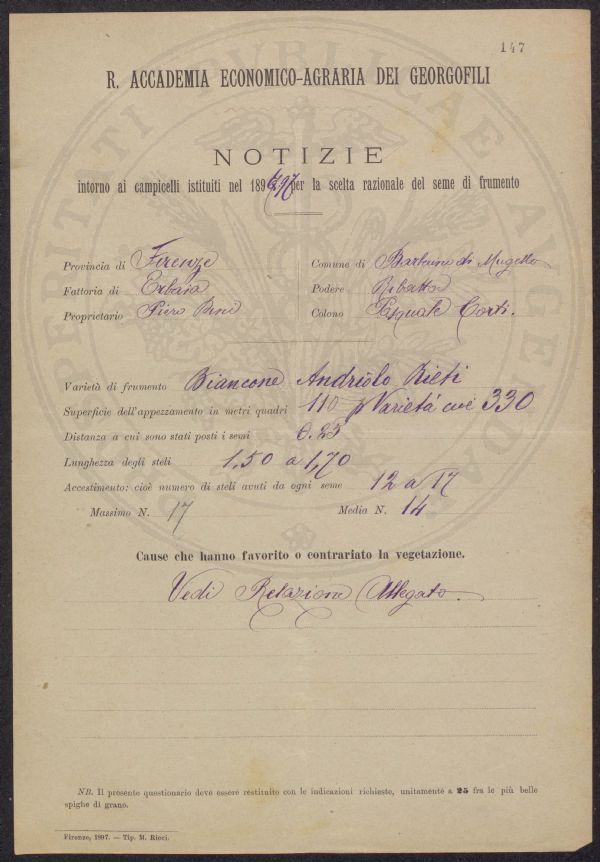 147
R. ACCADEMIA ECONOMICO-AGRARIA DEI GEORGOFILI
NOTIZIE
intorno ai campicelli istituiti nel 1896-97 per la scelta razionale del seme di frumento
Provincia di Firenze
Fattoria di Erbaia
Proprietario Piero Bini
Comune di Barberino di Mugello
Podere
Colono Pasquale Conti.
Varietà di frumento Biancone Andriolo Rieti
Superficie dell'appezzamento in metri quadri 110 p Varietá 330
Distanza a cui sono stati posti i semi 0.25
Lunghezza degli steli 1,50 a 1,70
Accestimento: cioè numero di steli avuti da ogni seme 12 a 17
Massimo N. 17 Media N. 14
Cause che hanno favorito o contrariato la vegetazione.
Vedi Relazione Allegato.
NB. Il presente questionario deve essere restituito con le indicazioni richieste, unitamente a 25 fra le più belle
spighe di grano.
Firenze, 1897. — Tip. M. Ricci.